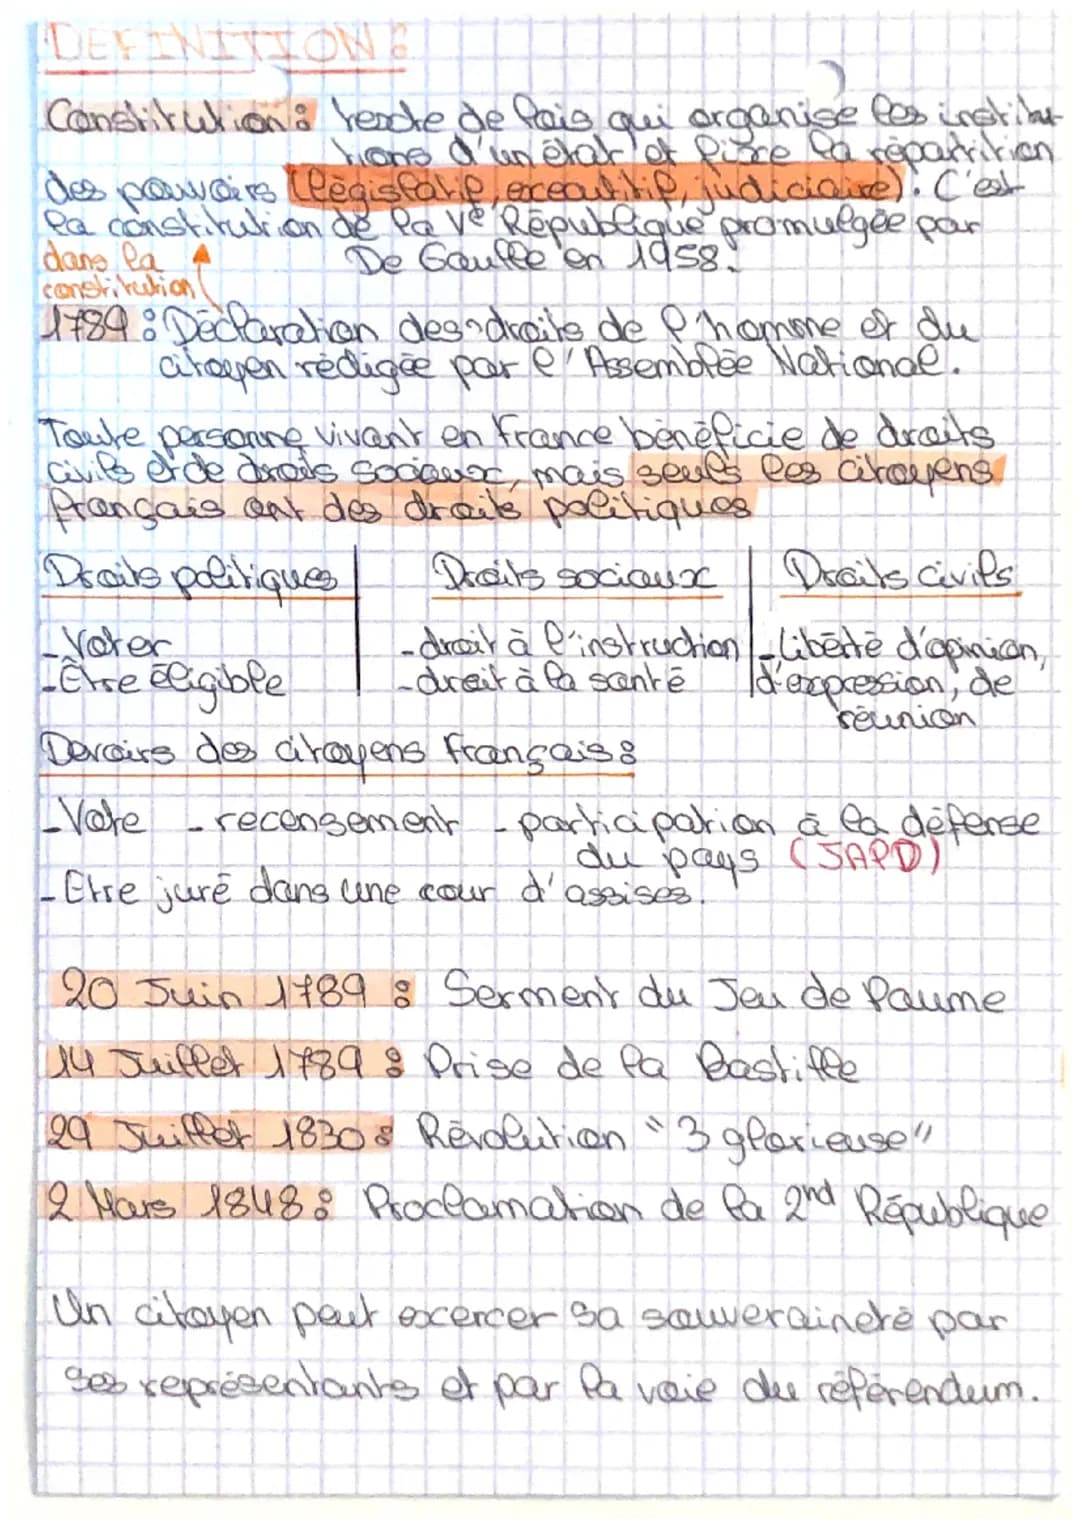 DEFINITION :
Constitution : texte de lois qui organise les institu-
tions d'un état et fixe la répartition
des pouvoirs (législatif, executitif, judiciaire). C'est
la constitution de la Ve République promulgée par
De Gaulle en 1958.
dans la
constitution
1789 : Déclaration des droits de l'homme et du
citoyen rédigée par l'Assemblée National.
Toute personne vivant en France bénéficie de droits
civils et de droits sociaux, mais seuls les citoyens
français ont des droits politiques
Droits politiques Droits sociaux Droits civils
- Voter - droit à l'instruction - Liberté d'opinion,
- Être éligible - droit à la santé d'expression, de
réunion
Devoirs des citoyens français :
- Vote - recensement - participation à la défense
du pays (JAPD)
- Etre juré dans une cour d'assises.
20 Juin 1789 : Serment du Jeu de Paume
14 Juillet 1789 : Prise de la Bastille
29 Juillet 1830 : Révolution "3 glorieuse"
2 Mars 1848 : Proclamation de la 2nd République
Un citoyen peut excercer sa souveraineté par
ses représentants et par la voie du référendum.